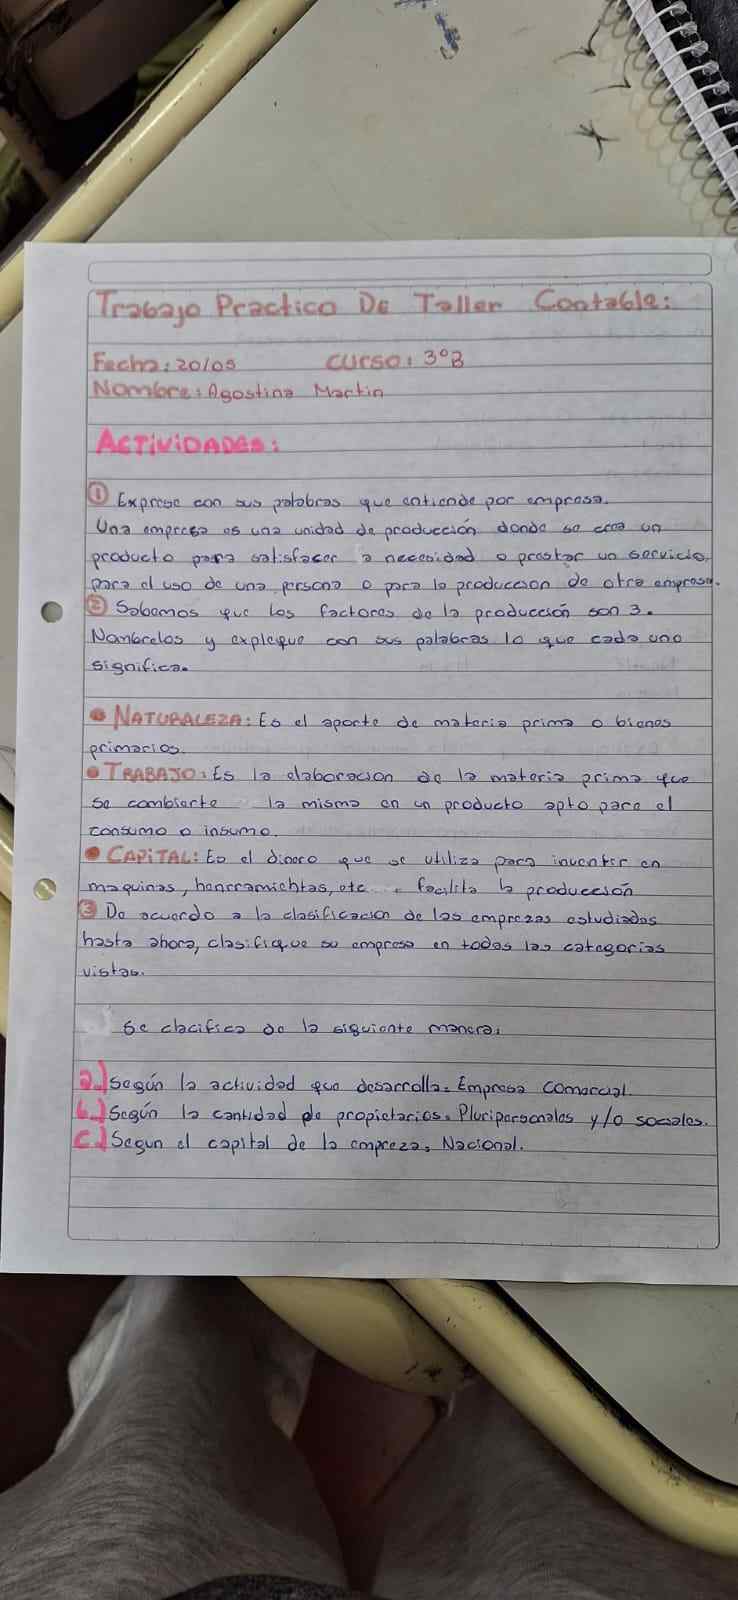 Trabajo Practico De Taller Contable:
Fecha: 20/05 Curso: 3°B
Nombre: Agostina Martin
ACTIVIDADES:
① Exprese con sus palabras que entiende por empresa.
Una empresa es una unidad de producción donde se crea un
producto para satisfacer a necesidad o prestar un servicio,
para el uso de una persona o para la produccion de otra empresa.
② Sabemos que los factores de la producción son 3.
Nombrelos y expleque con sus palabras lo que cada uno
significa.
• NATURALEZA: Es el aporte de materia prima o bienes
primarios.
• TRABAJO: Es la elaboracion de la materia prima que
se combierte la misma en un producto apto para el
consumo o insumo.
• CAPITAL: Es el dinero que se utiliza para inventir en
maquinas, herramichtas, etc. facilita la producción
③ De acuerdo a la clasificacion de las emprezas estudiadas
hasta ahora, clasifique su empresa en todas las categorias
vistas.
Se clacifica de la siguiente manera:
a.) Según la actividad que desarrolla: Empresa comercial.
b.) Según la cantidad de propietarios: Pluripersonales y/o sociales.
c.) Segun el capital de la empreza: Nacional.